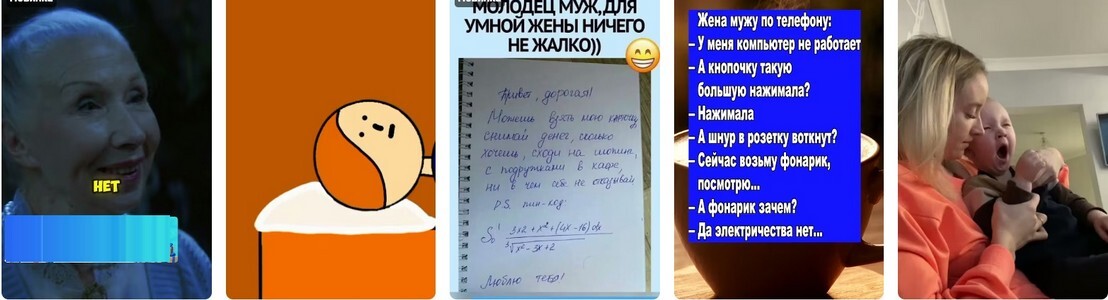 НЕТ
МОЛОДЕЦ МУЖ,ДЛЯ
УМНОЙ ЖЕНЫ НИЧЕГО
НЕ ЖАЛКО))
Привет, дорогая!
Можешь взять мою карточку,
снимай денег, сколько
хочешь, сходи на шопинг,
с подружками в кафе,
ни в чем себе не отказывай
P.S. пин-код:
3x2 + x² + (4x - 16) dx
³√x² - 3x + 2
Люблю тебя!
Жена мужу по телефону:
– У меня компьютер не работает
– А кнопочку такую
большую нажимала?
– Нажимала
– А шнур в розетку воткнут?
– Сейчас возьму фонарик,
посмотрю...
– А фонарик зачем?
– Да электричества нет...